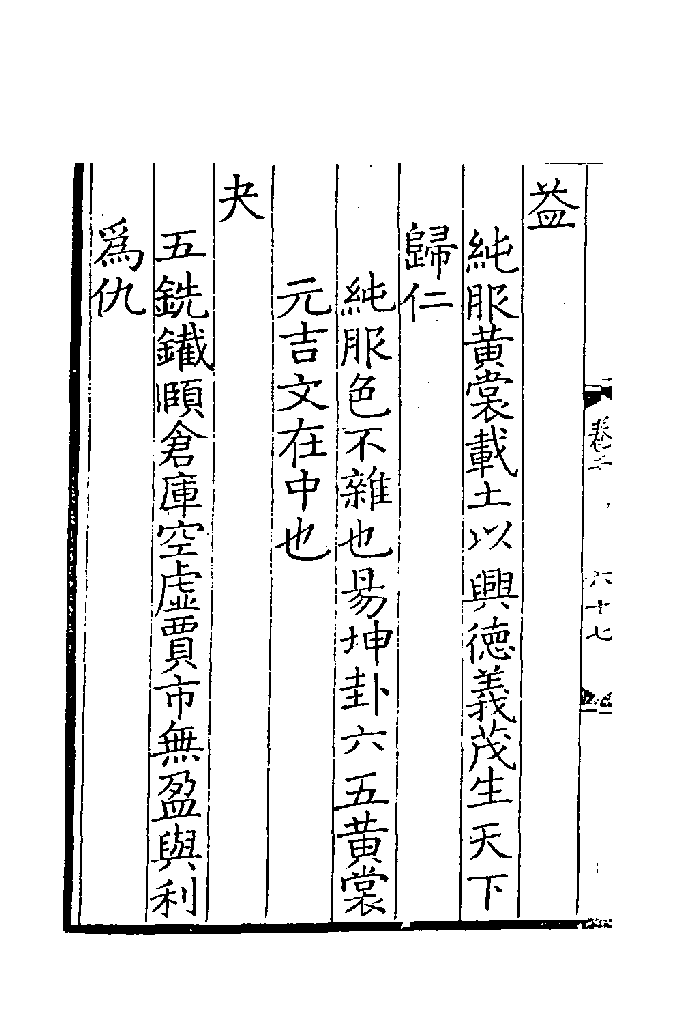 益
純服黃裳載土以興德義茂生天下
歸仁
純服色不雜也易坤卦六五黃裳
元吉文在中也
夬
五銑鐵頤倉庫空虛賈市無盈與利
為仇
卷三
六十七